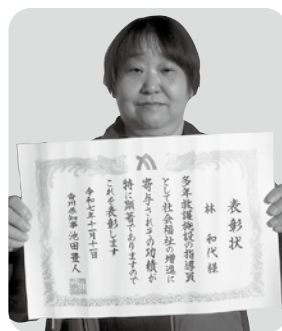 表彰状
林 和代 様
多年救護施設の指導員
として社会福祉の増進に
寄与されその功績が
特に顕著でありますので
これを表彰します
令和七年十一月十一日
香川県知事 池田豊人